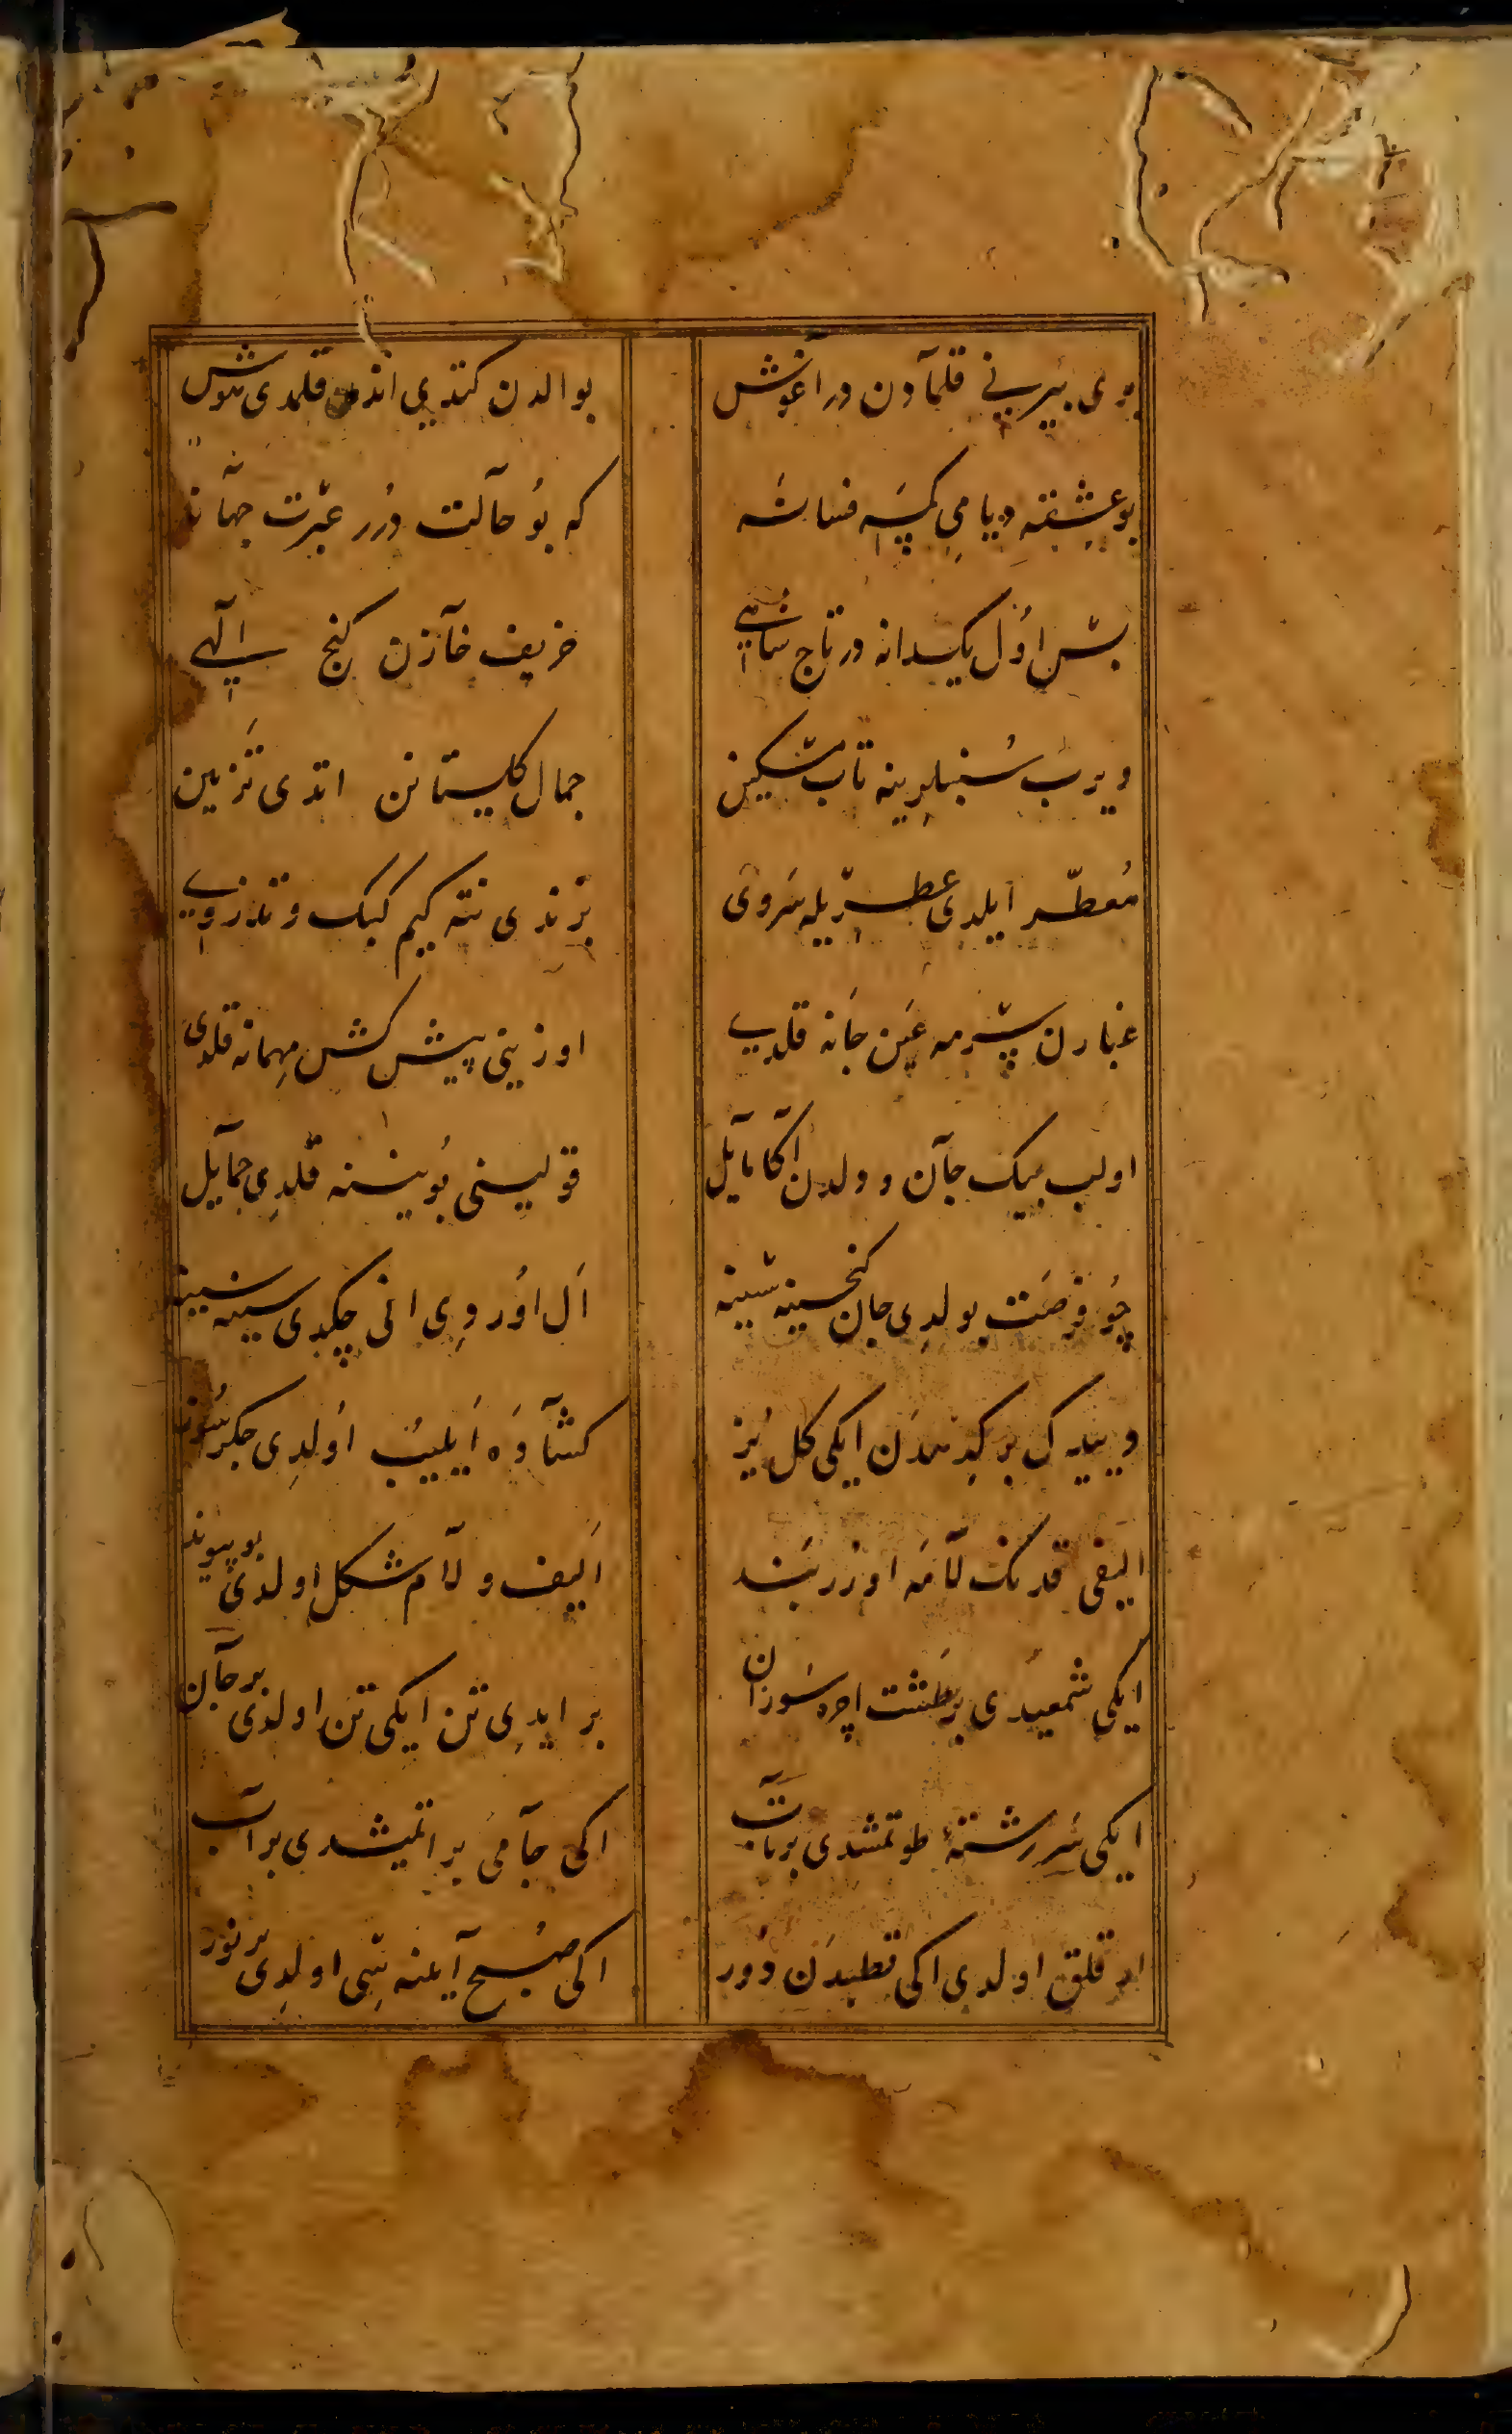 بری بیرینی قلمآدن در آغوش بو الدن کتدی اندن قلمدی هوش
بو عشقه دیامی کمسه فسانه که بو حآلت درر عبرت جهانه
بس اول یکدانه در تاج شاهی حریف خآزن کنج الهی
ویرب سنبلرینه تاب مشکین جمال کلستانن اتدی تزیین
معطّر ایلدی عطریله سروی بزندی نته کیم کبک و تذروی
غبارن سرمه عین جانه قلدی اوزینی پیش کش مهمانه قلدی
اولب بیک جآن و دلدن اکا مآیل قولینی بوینینه قلدی حمآیل
چو فرصت بولدی جان کنجینه سینه ال اوردی انی چکدی سینه سینه
دییدک بر کبدندن ایکی کل یز کشآده ایلیب اولدی جکرسوز
الیفی قدنک لآمه اوزر بند الیف و لآم شکل اولدی بو پیوند
ایکی شمعیدی بر طشت اچره سوزان بر ایدی تن ایکی تن اولدی بر جآن
ایکی سررشته طوتمشدی بر تآب اکی جآمی بر اتمیشدی بر آب
ار قلق اولدی اکی قطبدن دور اکی صبح آینه سی اولدی بر نور